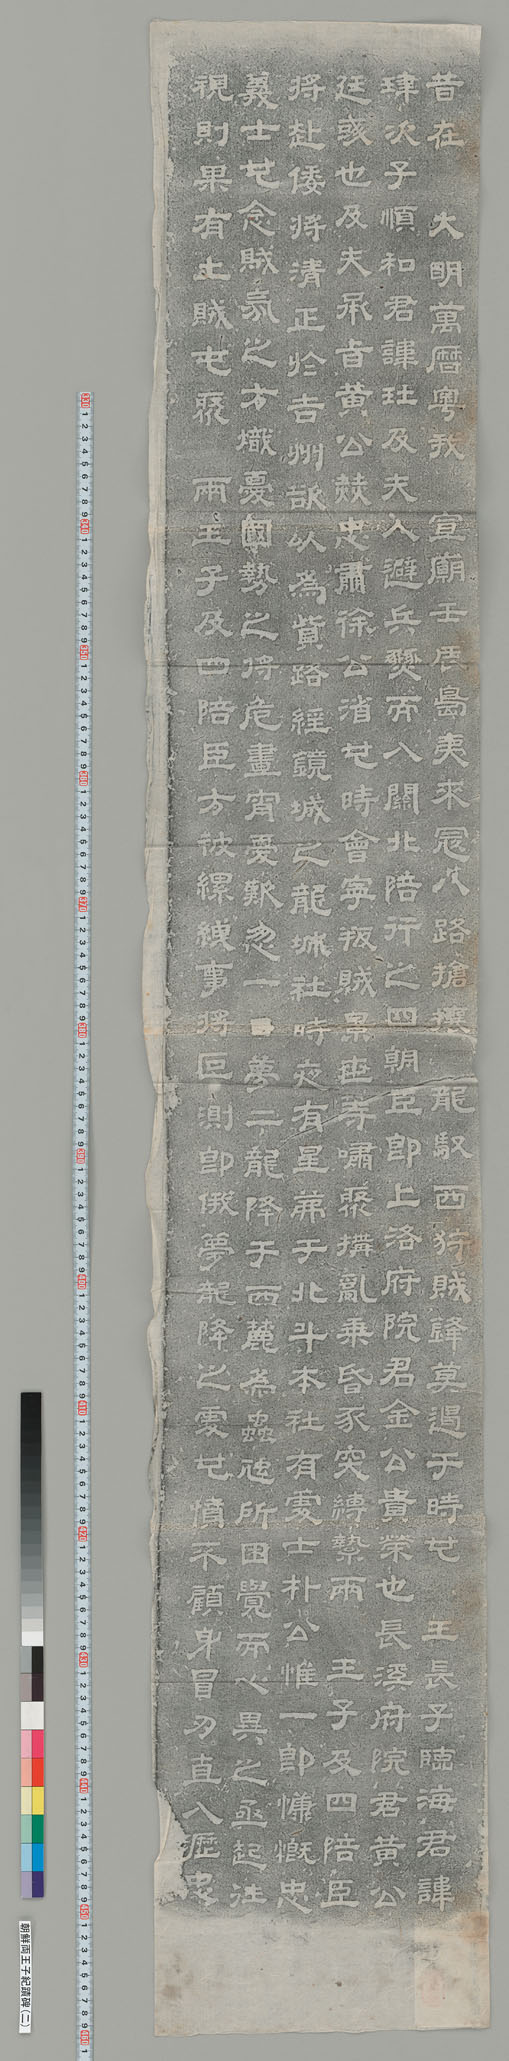 昔在 大明萬曆粤我 宣廟壬辰島夷來寇八路搶攘 龍馭西狩賊鋒莫遏于時也 王長子臨海君諱
珒次子順和君諱𤣰及夫人避兵燹而入關北陪行之四朝臣卽上洛府院君金公貴榮也長溪府院君黄公
廷彧也及夫承旨黄公赫忠肅徐公渻也時會寧叛賊景世等嘯聚搆亂乘昏豕突縛縶兩 王子及四陪臣
將赴倭将清正於吉州欲以為贄路經鏡城之龍城社時夜有星茀于北斗本社有處士朴公惟一卽慷慨忠
義士也念賊氛之方熾憂國勢之将危晝宵憂歎忽一日夢二龍降于西麓為蟲虺所困覺而心異之亟起往
視則果有土賊屯聚 兩王子及四陪臣方被縲絏事将叵測卽俄夢龍降之處也憤不顧身冒刃直入歷忠
朝鮮両王子紀蹟碑(二)